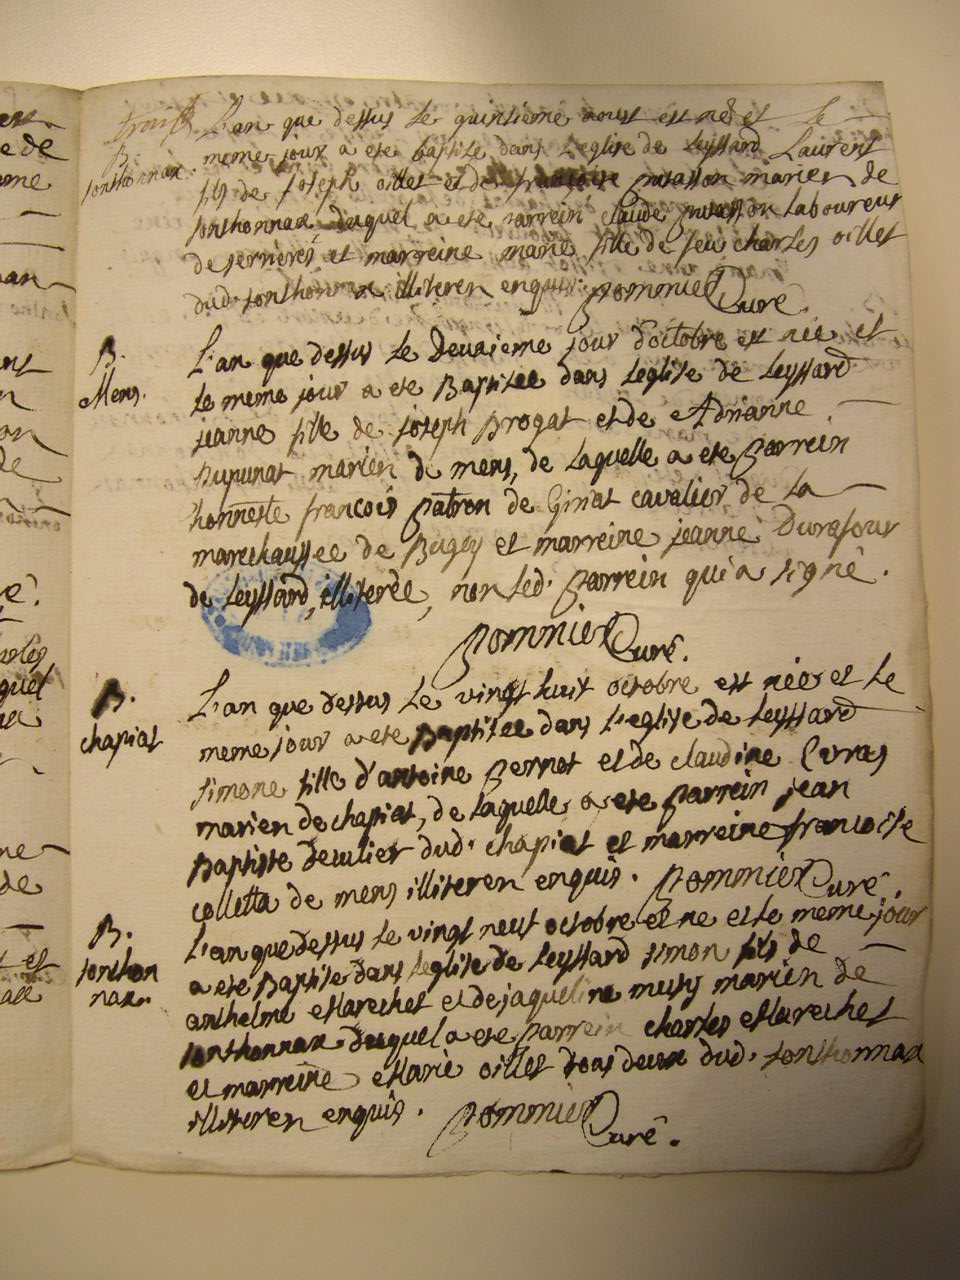 L'an que dessus le quinsieme aoust est né et le
B. meme jour a ete baptisé dans l'eglise de Leyssard Laurent
sonthonnax. fils de joseph oillet et de francoise marien de
sonthonnax duquel a ete parrein claude laboureur
de serrieres et marreine marie fille de feu charles oillet
dud. sonthonnax illiteren enquis. pommier Curé.
B. L'an que dessus le Deuxieme jour d'octobre est née et
Mens. le meme jour a ete Baptisee dans l'eglise de Leyssard
jeanne fille de joseph Brogat et de Adrianne
Dupunat marien de mens, de laquelle a ete parrein
honneste francois patron de Giriat cavalier de la
marechaussee de Bugey et marreine jeanne Durafour
de Leyssard, illiteree, non led. parrein qui a signé.
pommier Curé.
B. L'an que dessus le vingt huit octobre est née et le
chapiat meme jour a ete Baptisee dans l'eglise de Leyssard
simone fille d'antoine Bernet et de claudine
marien de chapiat, de laquelle a ete parrein jean
Baptiste dud. chapiat et marreine francoise
colletta de mens illiteren enquis. pommier Curé.
B. L'an que dessus le vingt neuf octobre et ne et le meme jour
sonthon a ete Baptisé dans l'eglise de Leyssard simon fils de
nax. anthelme Marechet et de jaqueline musy marien de
sonthonnax duquel a ete parrein charles Marechet
et marreine Marie oillet tous deux dud. sonthonnax
illiteren enquis. pommier
Curé.